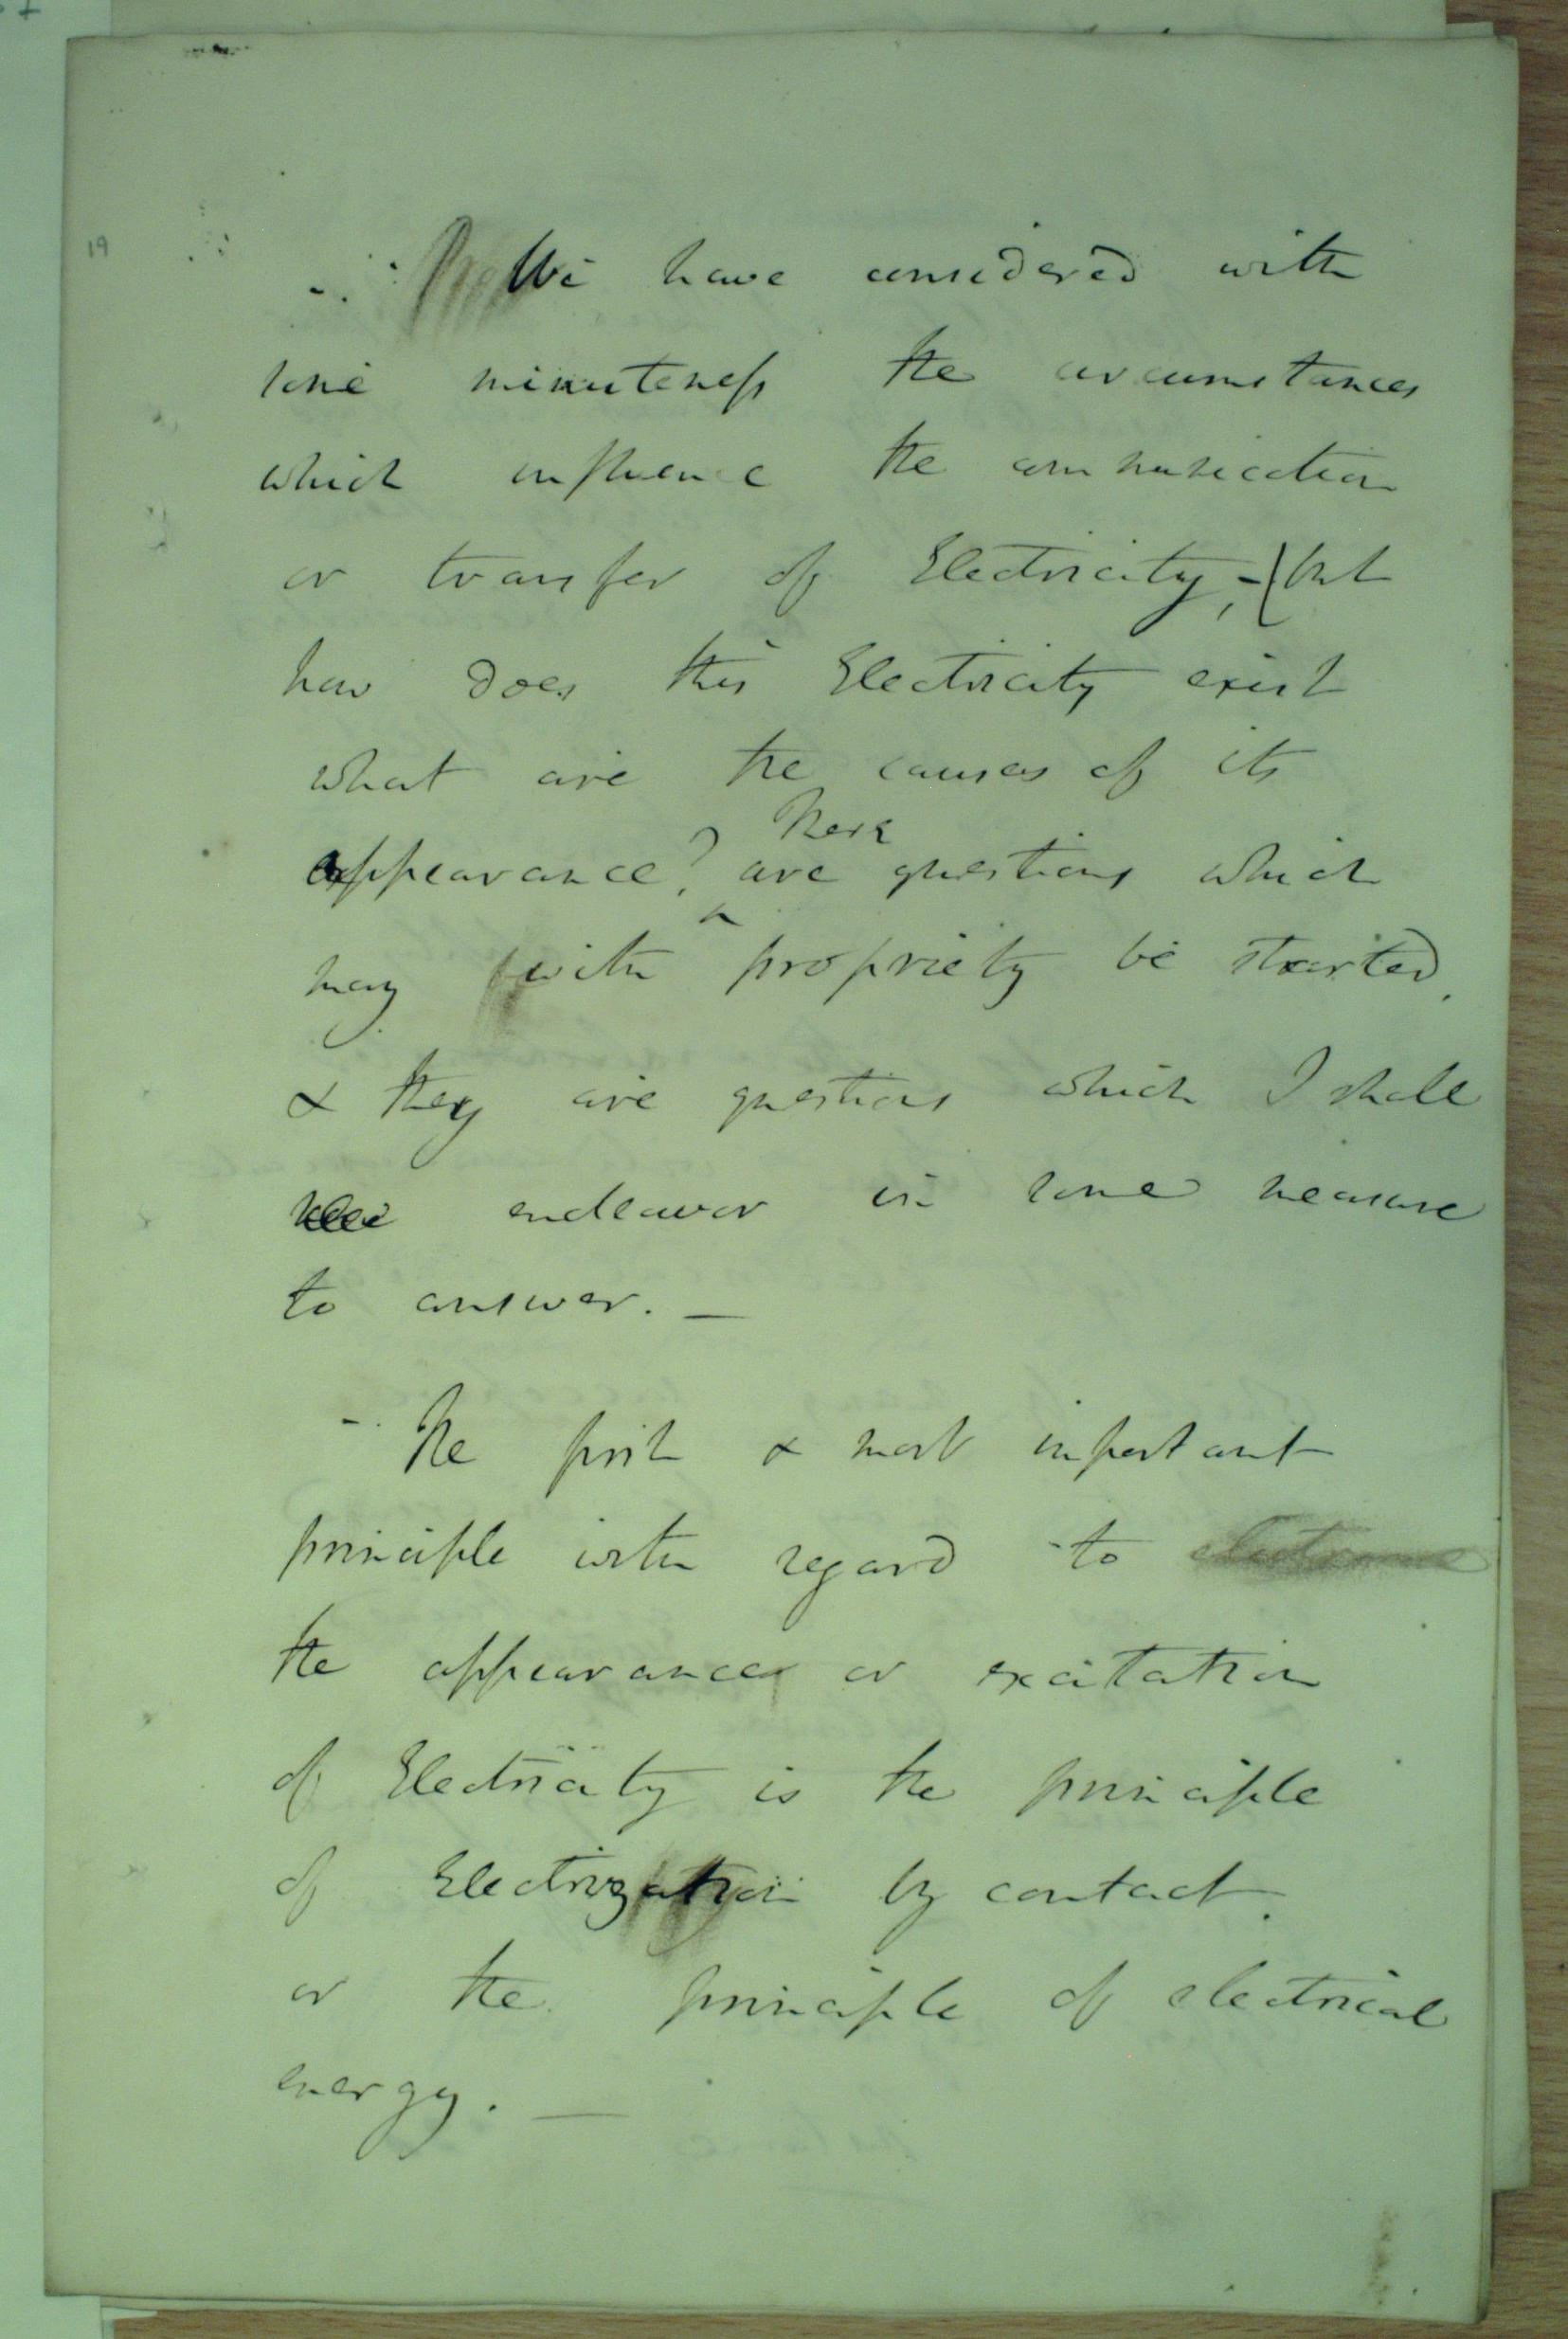 19
We have considered with
some minuteness the circumstances
which influence the communication
or transfer of Electricity, - (but
how does this Electricity exist
what are the causes of its
appearance? These are questions which
may with propriety be started,
& they are questions which I shall
endeavor in some measure
to answer. —
- The first & most important
principle with regard to
the appearance or excitation
of Electricity is the principle
of Electrization by contact.
or the principle of electrical
energy. —